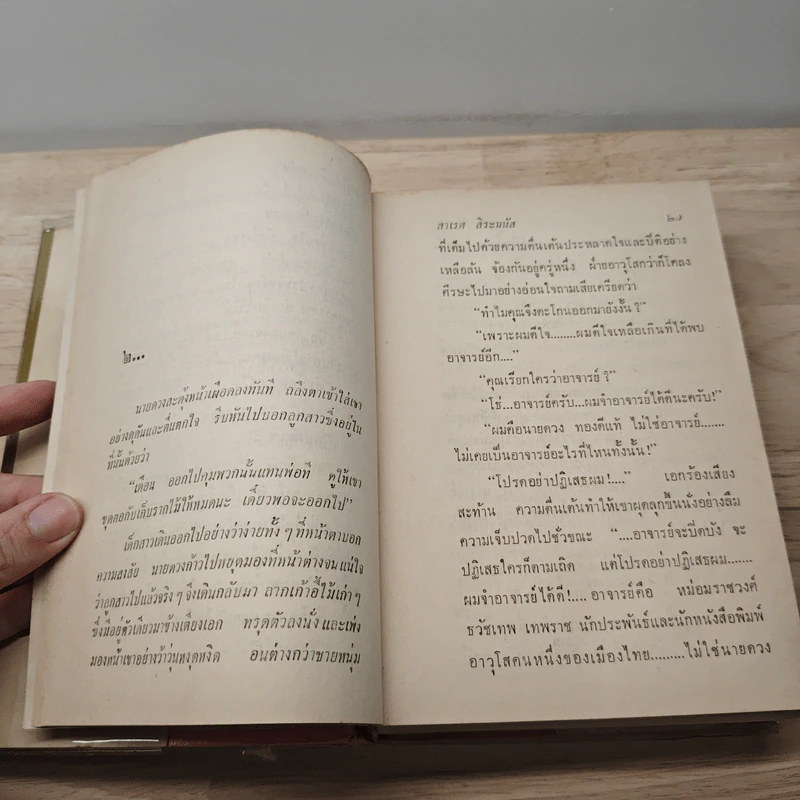 ๒...
นายดวงสะดุ้งหน้าเผือดลงทันที ถลึงตาเข้าใส่เขา
อย่างดุดันและตื่นตกใจ รีบหันไปบอกลูกสาวซึ่งอยู่ใน
ที่นั้นด้วยว่า
"เดือน ออกไปคุมพวกนั้นแทนพ่อที ดูให้เขา
ขุดตอกับเก็บรากไม้ให้หมดนะ เดี๋ยวพ่อจะออกไป"
เด็กสาวเดินออกไปอย่างว่าง่ายทั้ง ๆ ที่หน้าตาบอก
ความสงสัย นายดวงก้าวไปหยุดมองที่หน้าต่างจนแน่ใจ
ว่าลูกสาวไปแล้วจริง ๆ จึงเดินกลับมา ลากเก้าอี้ไม้เก่า ๆ
ซึ่งมีอยู่ตัวเดียวมาข้างเตียงเอก ทรุดตัวลงนั่ง และเพ่ง
มองหน้าเขาอย่างว้าวุ่นหงุดหงิด อนต่างกว่าชายหนุ่ม
สาเรศ สิระมนัส
ที่เต็มไปด้วยความตื่นเต้นประหลาดใจและปีติอย่าง
เหลือล้น จ้องกันอยู่ครู่หนึ่ง ฝ่ายอาวุโสกว่าก็โคลง
ศีรษะไปมาอย่างอ่อนใจถามเสียเครียดว่า
"ทำไมคุณจึงตะโกนออกมายังงั้น ?"
"เพราะผมดีใจ........ผมดีใจเหลือเกินที่ได้พบ
อาจารย์อีก...."
"คุณเรียกใครว่าอาจารย์ ?"
"โธ่...อาจารย์ครับ...ผมจำอาจารย์ได้ดีนะครับ!"
"ผมคือนายดวง ทองดีแท้ ไม่ใช่อาจารย์.......
ไม่เคยเป็นอาจารย์อะไรที่ไหนทั้งนั้น!"
"โปรดอย่าปฏิเสธผม!...." เอกร้องเสียง
สะท้าน ความตื่นเต้นทำให้เขาผุดลุกขึ้นนั่งอย่างลืม
ความเจ็บปวดไปชั่วขณะ "....อาจารย์จะปิดบัง จะ
ปฏิเสธใครก็ตามเถิด แต่โปรดอย่าปฏิเสธผม.......
ผมจำอาจารย์ได้ดี!.... อาจารย์คือ หม่อมราชวงศ์
ธวัชเทพ เทพราช นักประพันธ์และนักหนังสือพิมพ์
อาวุโสคนหนึ่งของเมืองไทย.........ไม่ใช่นายดวง